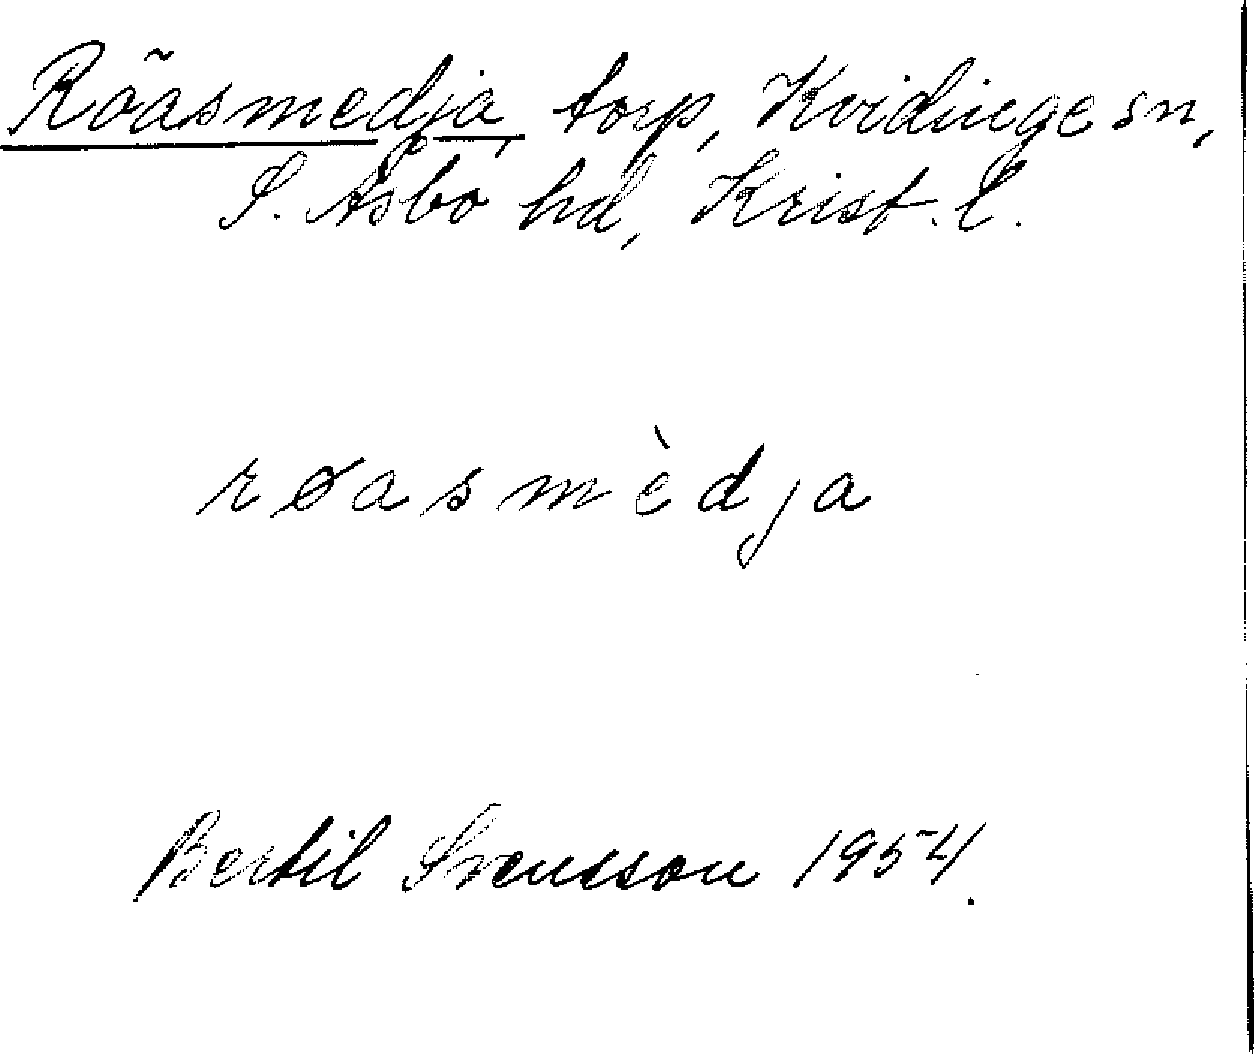 Röasmedja, torp, Kvidinge sn,
S. Åsbo hd, Krist. l.
røasmèdja
Bertil Svensson 1954.